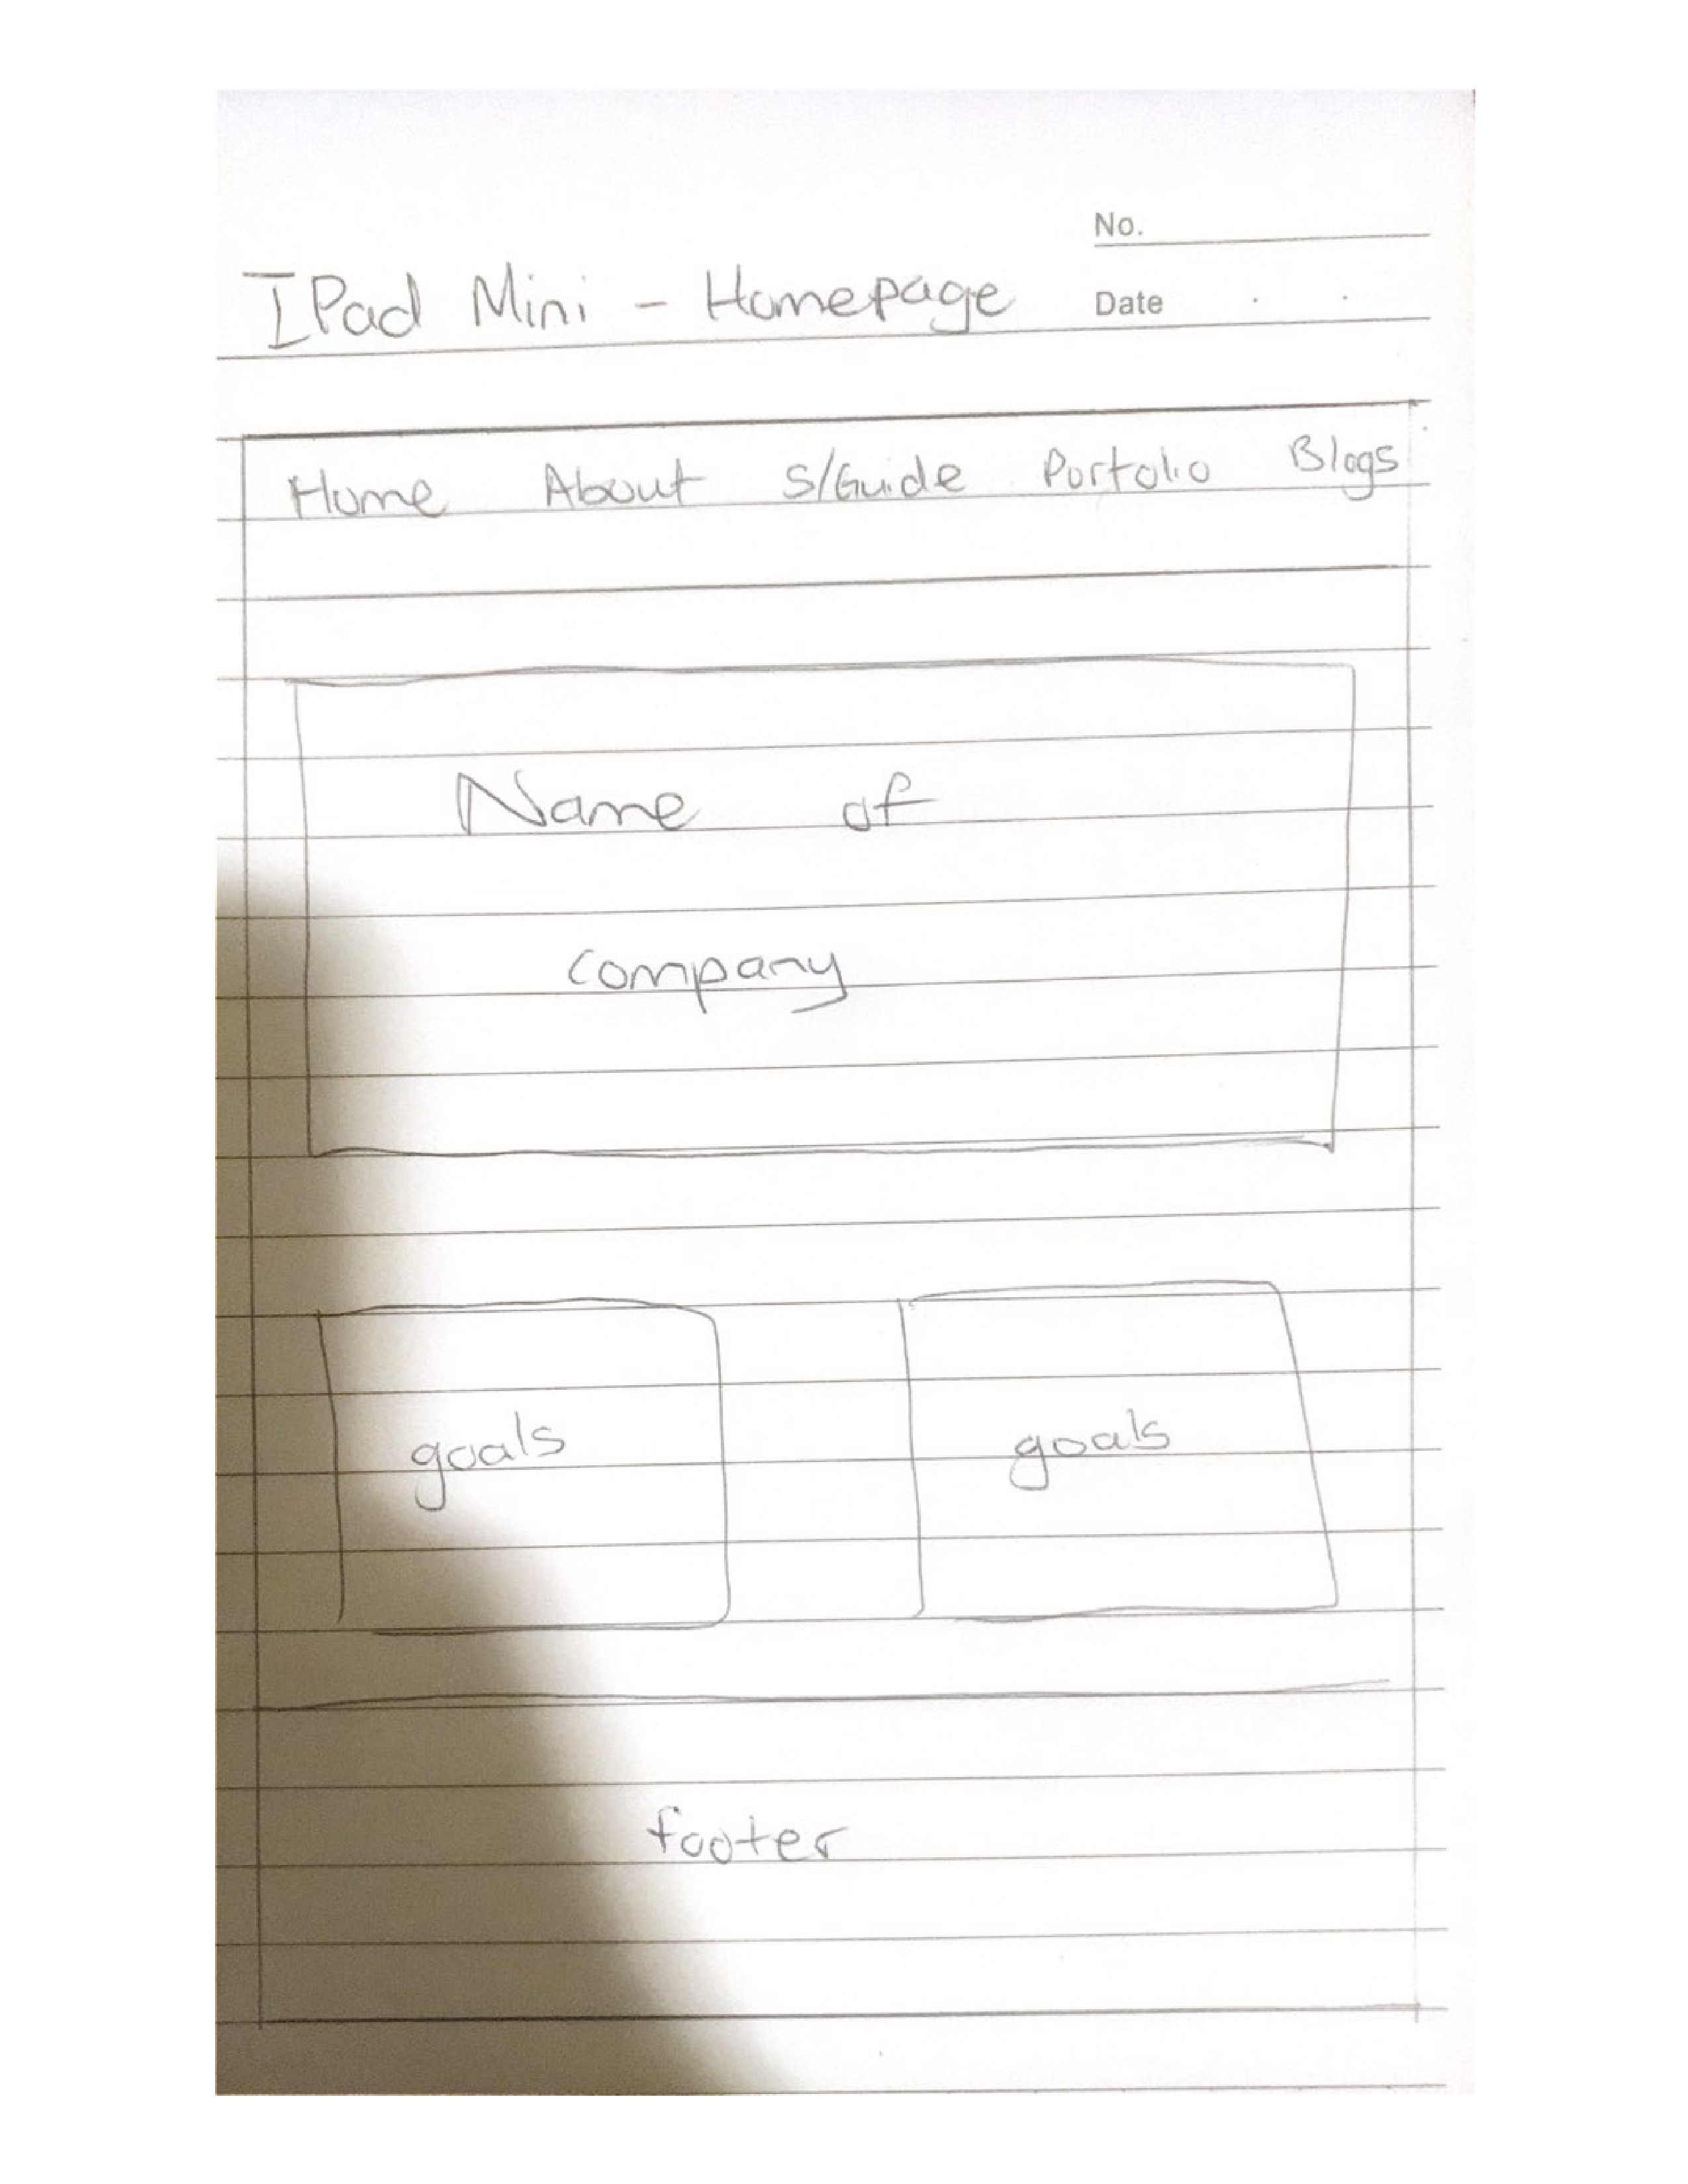 No.
IPad Mini - Homepage
Date . .
Home About S/Guide Portolio Blogs
Name of
company
goals goals
footer